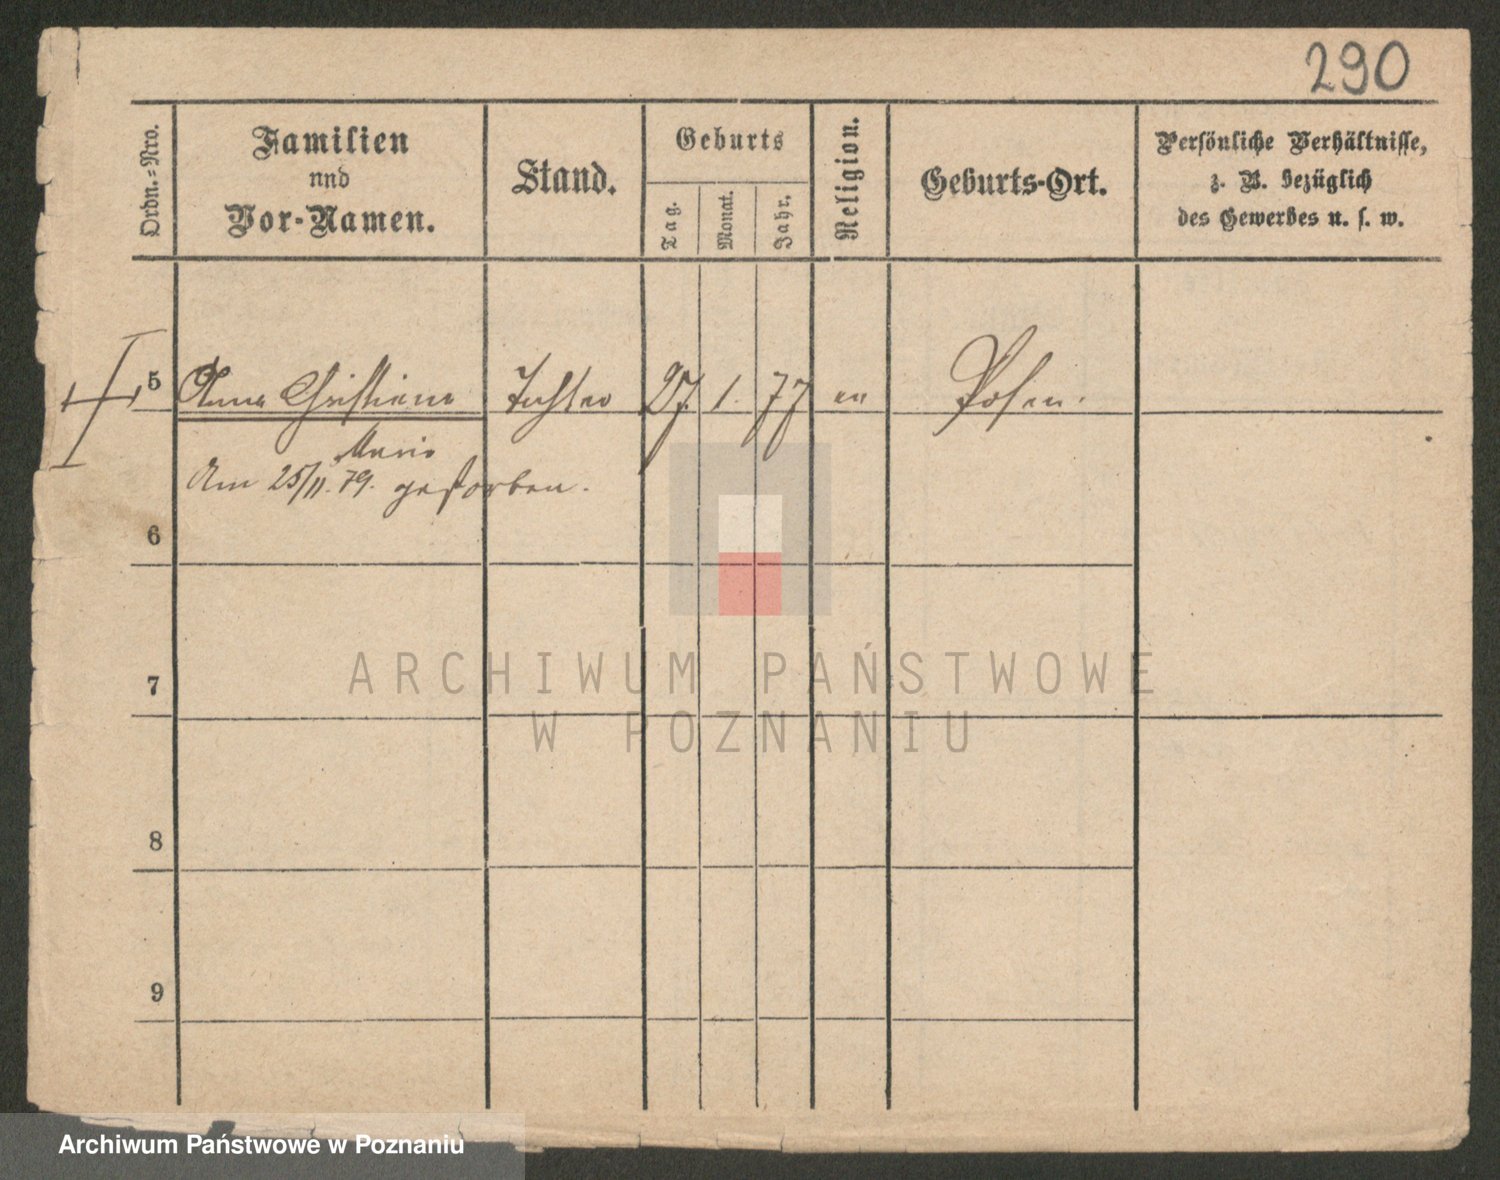 290
Ordn.-Nro.
Familien
und
Vor-Namen.
Stand.
Geburts
Tag.
Monat.
Jahr.
Religion.
Geburts-Ort.
Persönliche Verhältnisse,
z. B. bezüglich
des Gewerbes u. s. w.
5 Anna Christiane Tochter 27. 1. 77 ev Posen.
Marie
Am 25/11. 79. gestorben.
6
7
8
9
ARCHIWUM PAŃSTWOWE
W POZNANIU
Archiwum Państwowe w Poznaniu